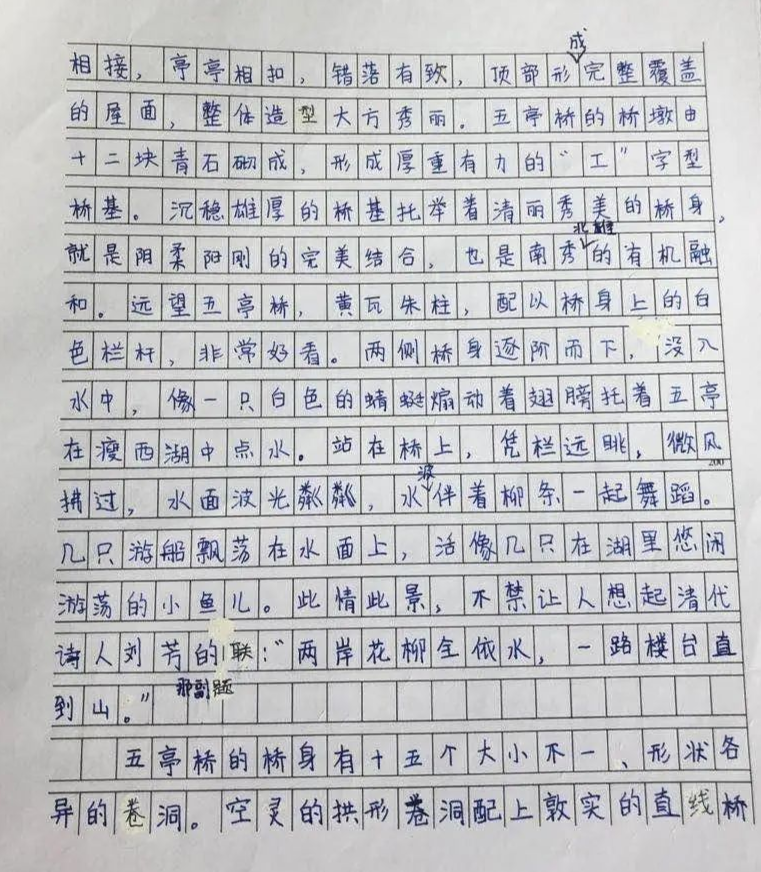 相接，亭亭相扣，错落有致，顶部形成完整覆盖
的屋面，整体造型大方秀丽。五亭桥的桥墩由
十二块青石砌成，形成厚重有力的“工”字型
桥基。沉稳雄厚的桥基托举着清丽秀美的桥身，
就是阴柔阳刚的完美结合，也是南秀北雄的有机融
和。远望五亭桥，黄瓦朱柱，配以桥身上的白
色栏杆，非常好看。两侧桥身逐阶而下，没入
水中，像一只白色的蜻蜓煽动着翅膀托着五亭
在瘦西湖中点水。站在桥上，凭栏远眺，微风
200
拂过，水面波光粼粼，水波伴着柳条一起舞蹈。
几只游船飘荡在水面上，活像几只在湖里悠闲
游荡的小鱼儿。此情此景，不禁让人想起清代
诗人刘芳的那副题联：“两岸花柳全依水，一路楼台直
到山。”
五亭桥的桥身有十五个大小不一、形状各
异的卷洞。空灵的拱形卷洞配上敦实的直线桥